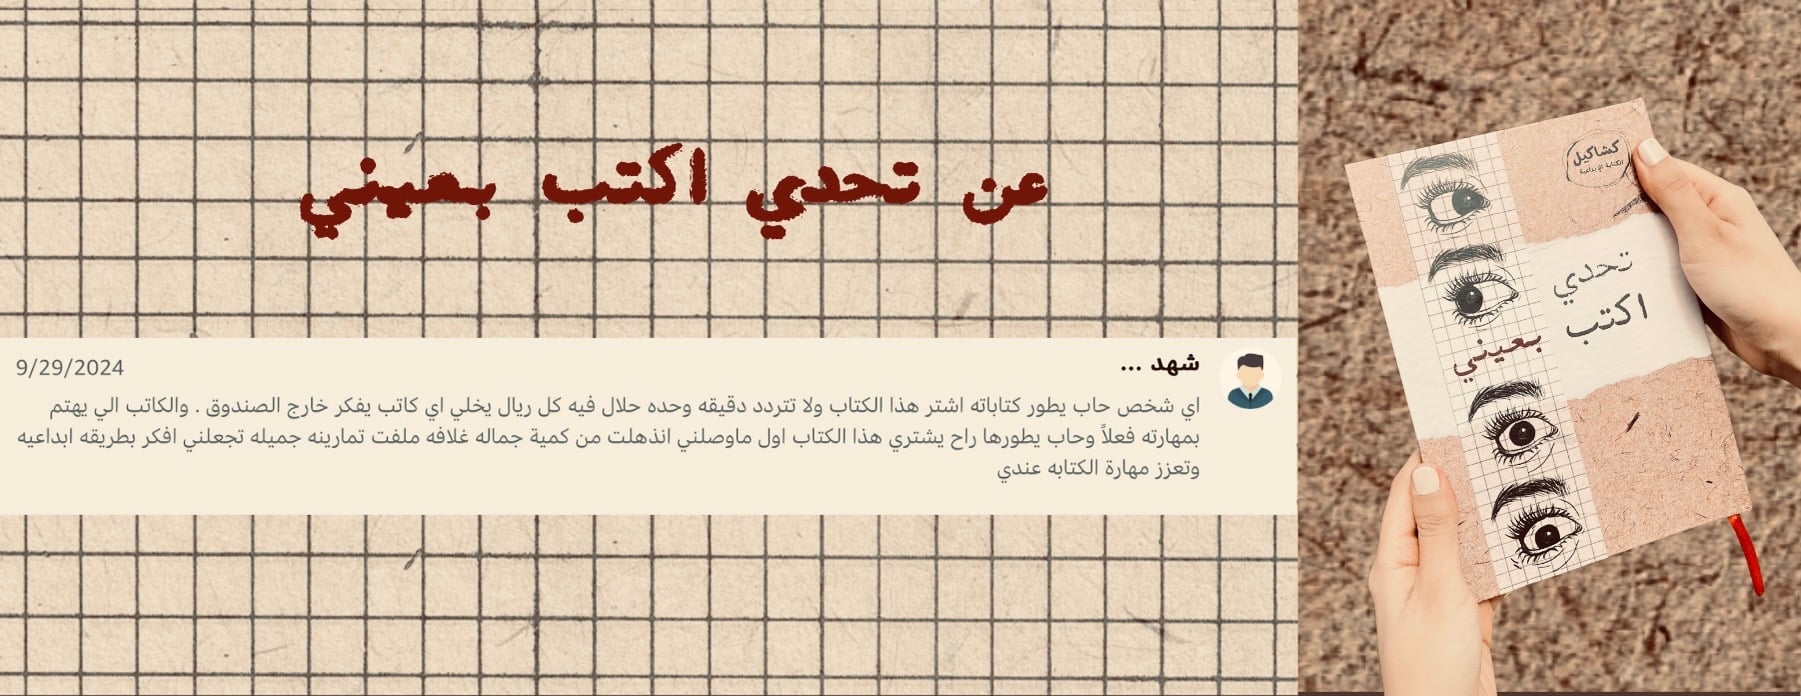 عن تحدي اكتب بعيني
شهد ...
9/29/2024
اي شخص حاب يطور كتاباته اشتر هذا الكتاب ولا تتردد دقيقه وحده حلال فيه كل ريال يخلي اي كاتب يفكر خارج الصندوق . والكاتب الي يهتم
بمهارته فعلاً وحاب يطورها راح يشتري هذا الكتاب اول ماوصلني انذهلت من كمية جماله غلافه ملفت تمارينه جميله تجعلني افكر بطريقه ابداعيه
وتعزز مهارة الكتابه عندي
كشاكيل
الكتابة الإبداعية
تحدي
اكتب
بعيني